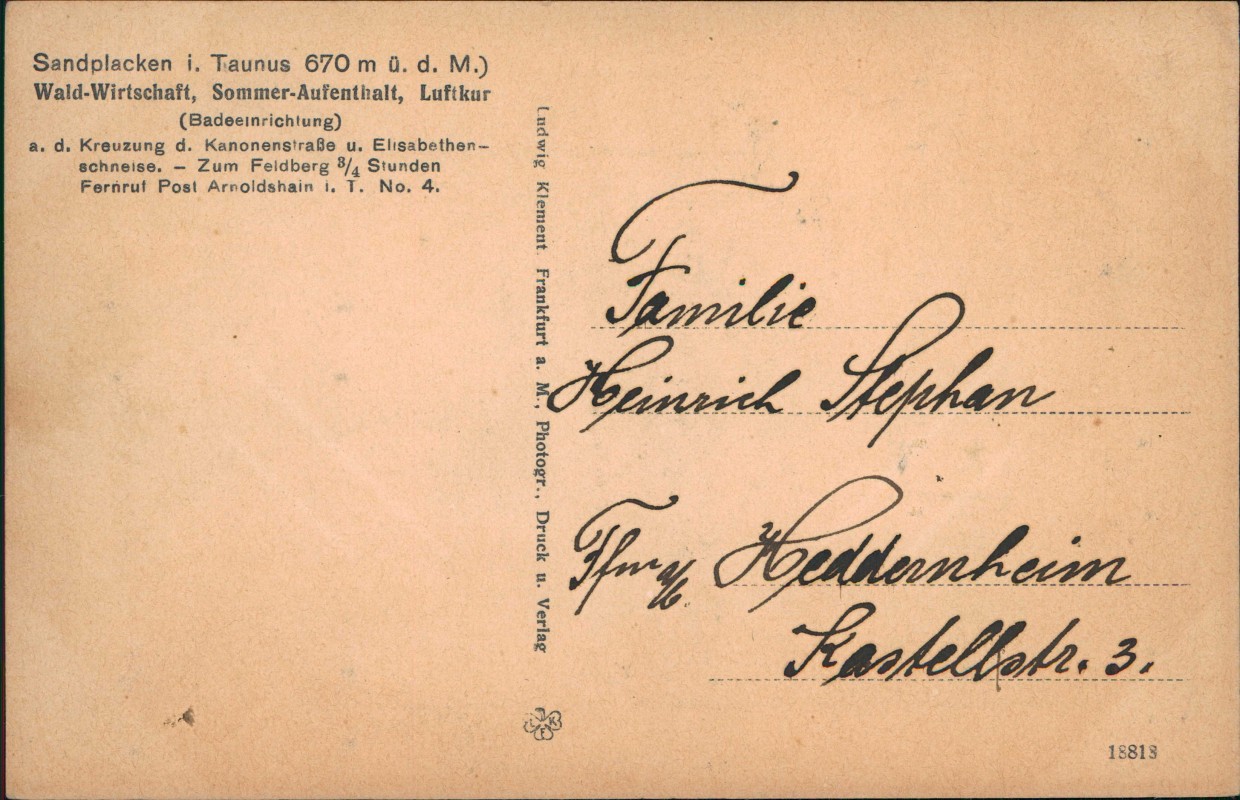 Sandplacken i. Taunus 670 m ü. d. M.)
Wald-Wirtschaft, Sommer-Aufenthalt, Luftkur
(Badeeinrichtung)
a. d. Kreuzung d. Kanonenstraße u. Elisabethen-
schneise. – Zum Feldberg 3/4 Stunden
Fernruf Post Arnoldshain i. T. No. 4.
Ludwig Klement. Frankfurt a. M., Photogr., Druck u. Verlag
Familie
Heinrich Stephan
Heddernheim
Kastellstr. 3.
18818